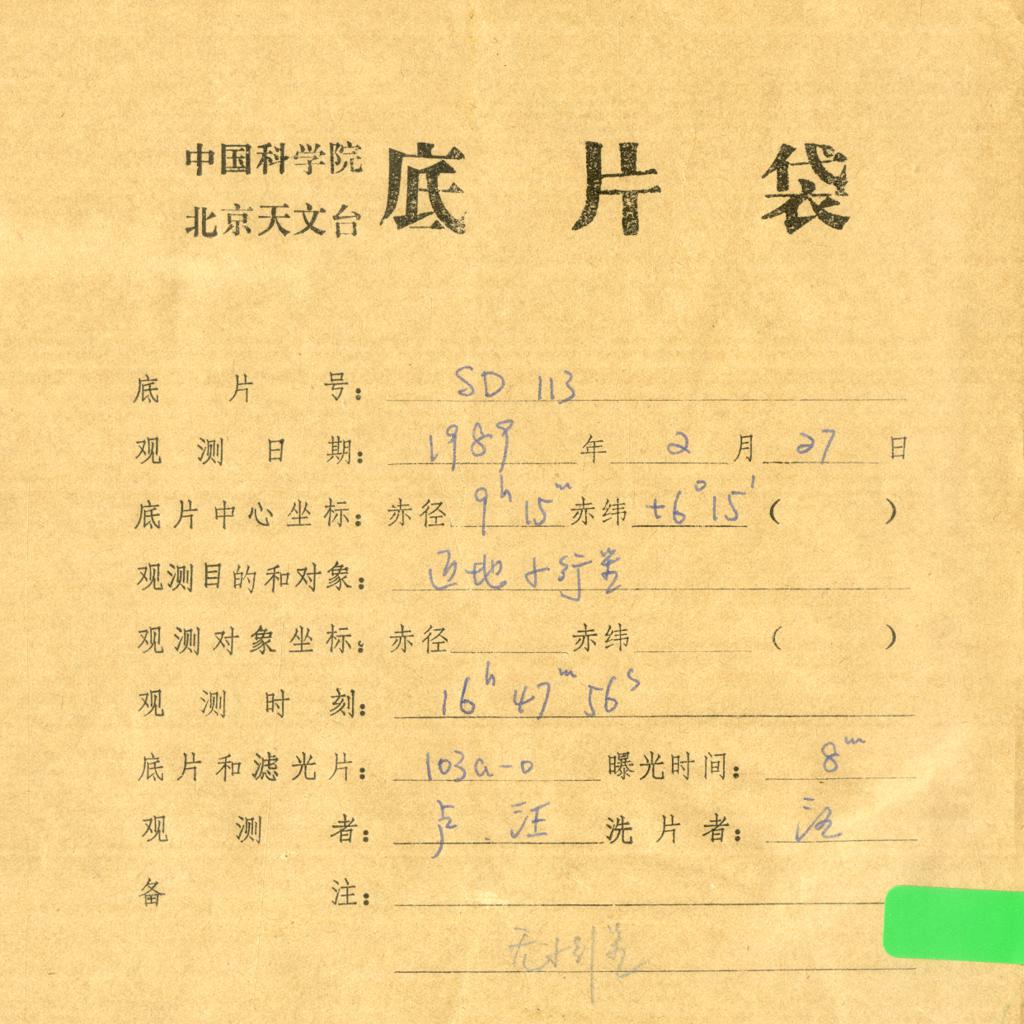 中国科学院
北京天文台
底片袋
底片号：SD 113
观测日期：1989年2月27日
底片中心坐标：赤径 9ʰ15ᵐ 赤纬 +6°15′（ ）
观测目的和对象：近地小行星
观测对象坐标：赤径 赤纬 （ ）
观测时刻：16ʰ47ᵐ56ˢ
底片和滤光片：103a-o 曝光时间：8ᵐ
观测者：卢.汪 洗片者：汪
备注：
无小行星